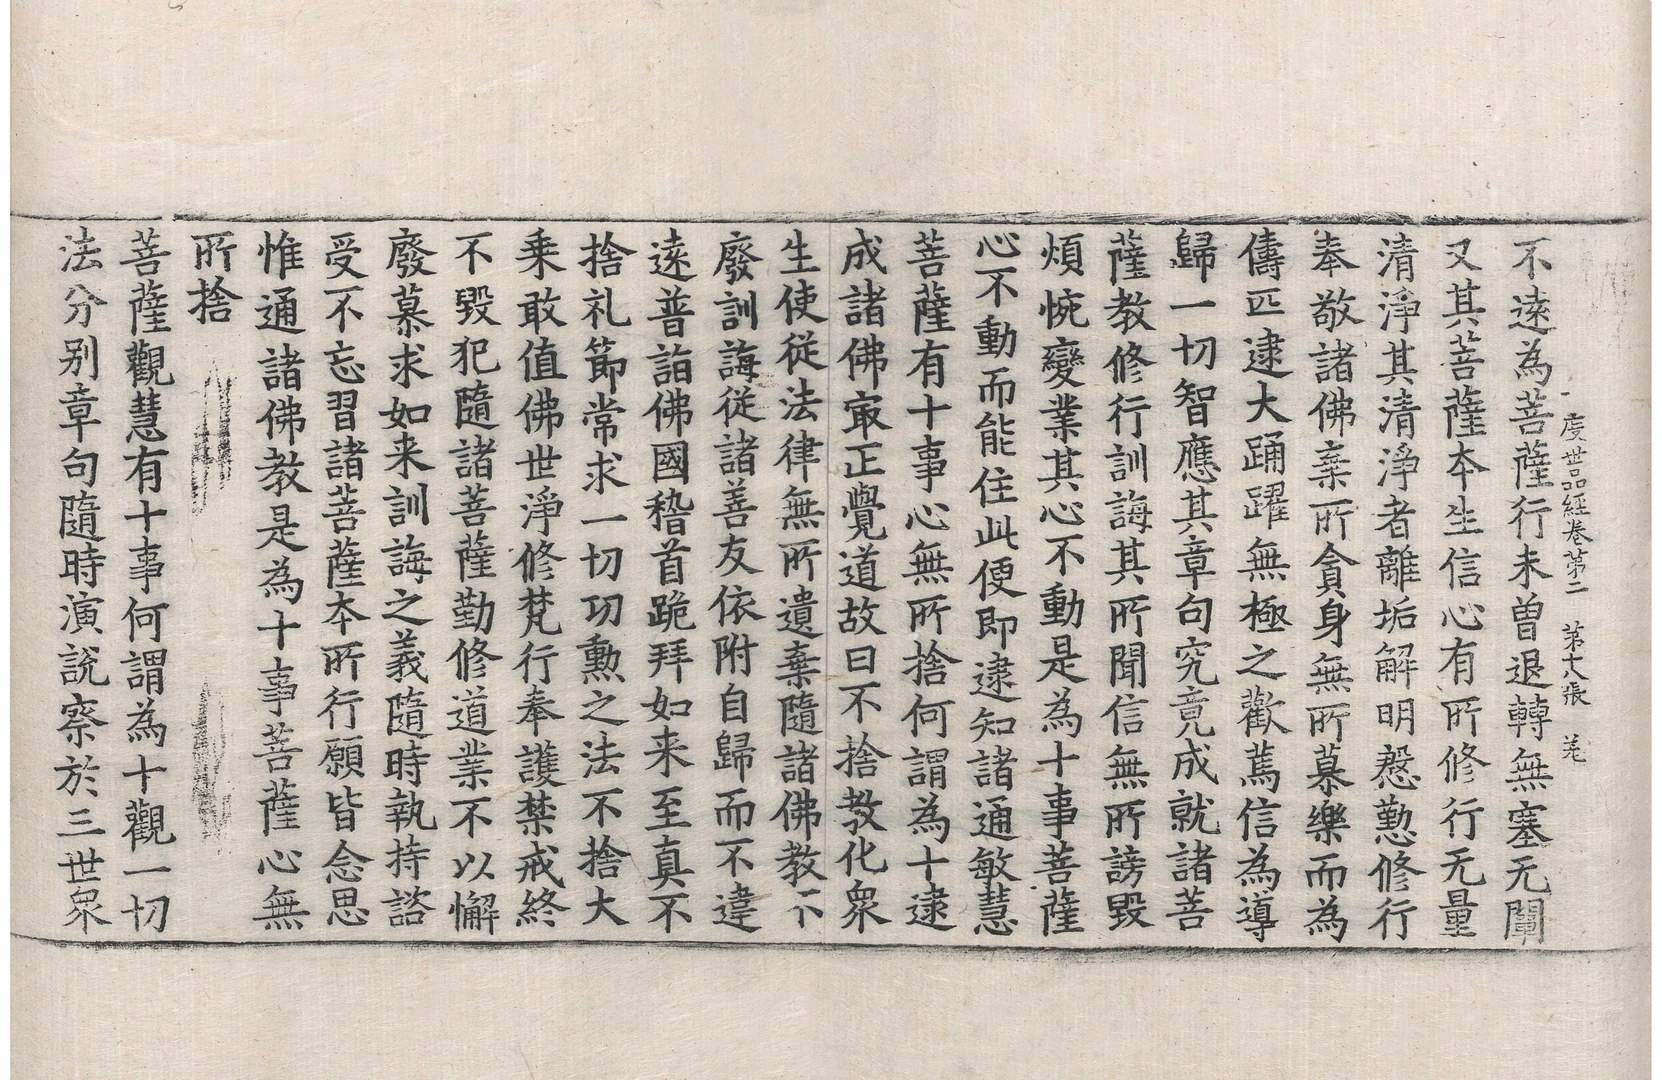 度世品經卷第二　第十八張　羌
不遠為菩薩行未曽退轉無塞无闡
又其菩薩夲生信心有所修行无量
清淨其清淨者離垢解明慇懃修行
奉敬諸佛棄所貪身無所慕樂而為
儔匹逮大踊躍無極之歡篤信為導
歸一切智應其章句究竟成就諸菩
薩教修行訓誨其所聞信無所謗毀
煩惋變業其心不動是為十事菩薩
心不動而能住此便即逮知諸通敏慧
菩薩有十事心無所捨何謂為十逮
成諸佛㝡正覺道故曰不捨教化衆
生使從法律無所遺棄隨諸佛教不
廢訓誨從諸善友依附自歸而不違
遠普詣佛國稽首跪拜如来至真不
捨礼節常求一切功勲之法不捨大
乗敢值佛世淨修梵行奉護禁戒終
不毀犯隨諸菩薩勤修道業不以懈
廢慕求如来訓誨之義隨時執持諮
受不忘習諸菩薩夲所行願皆念思
惟通諸佛教是為十事菩薩心無
所捨
菩薩觀慧有十事何謂為十觀一切
法分别章句隨時演說察於三世衆